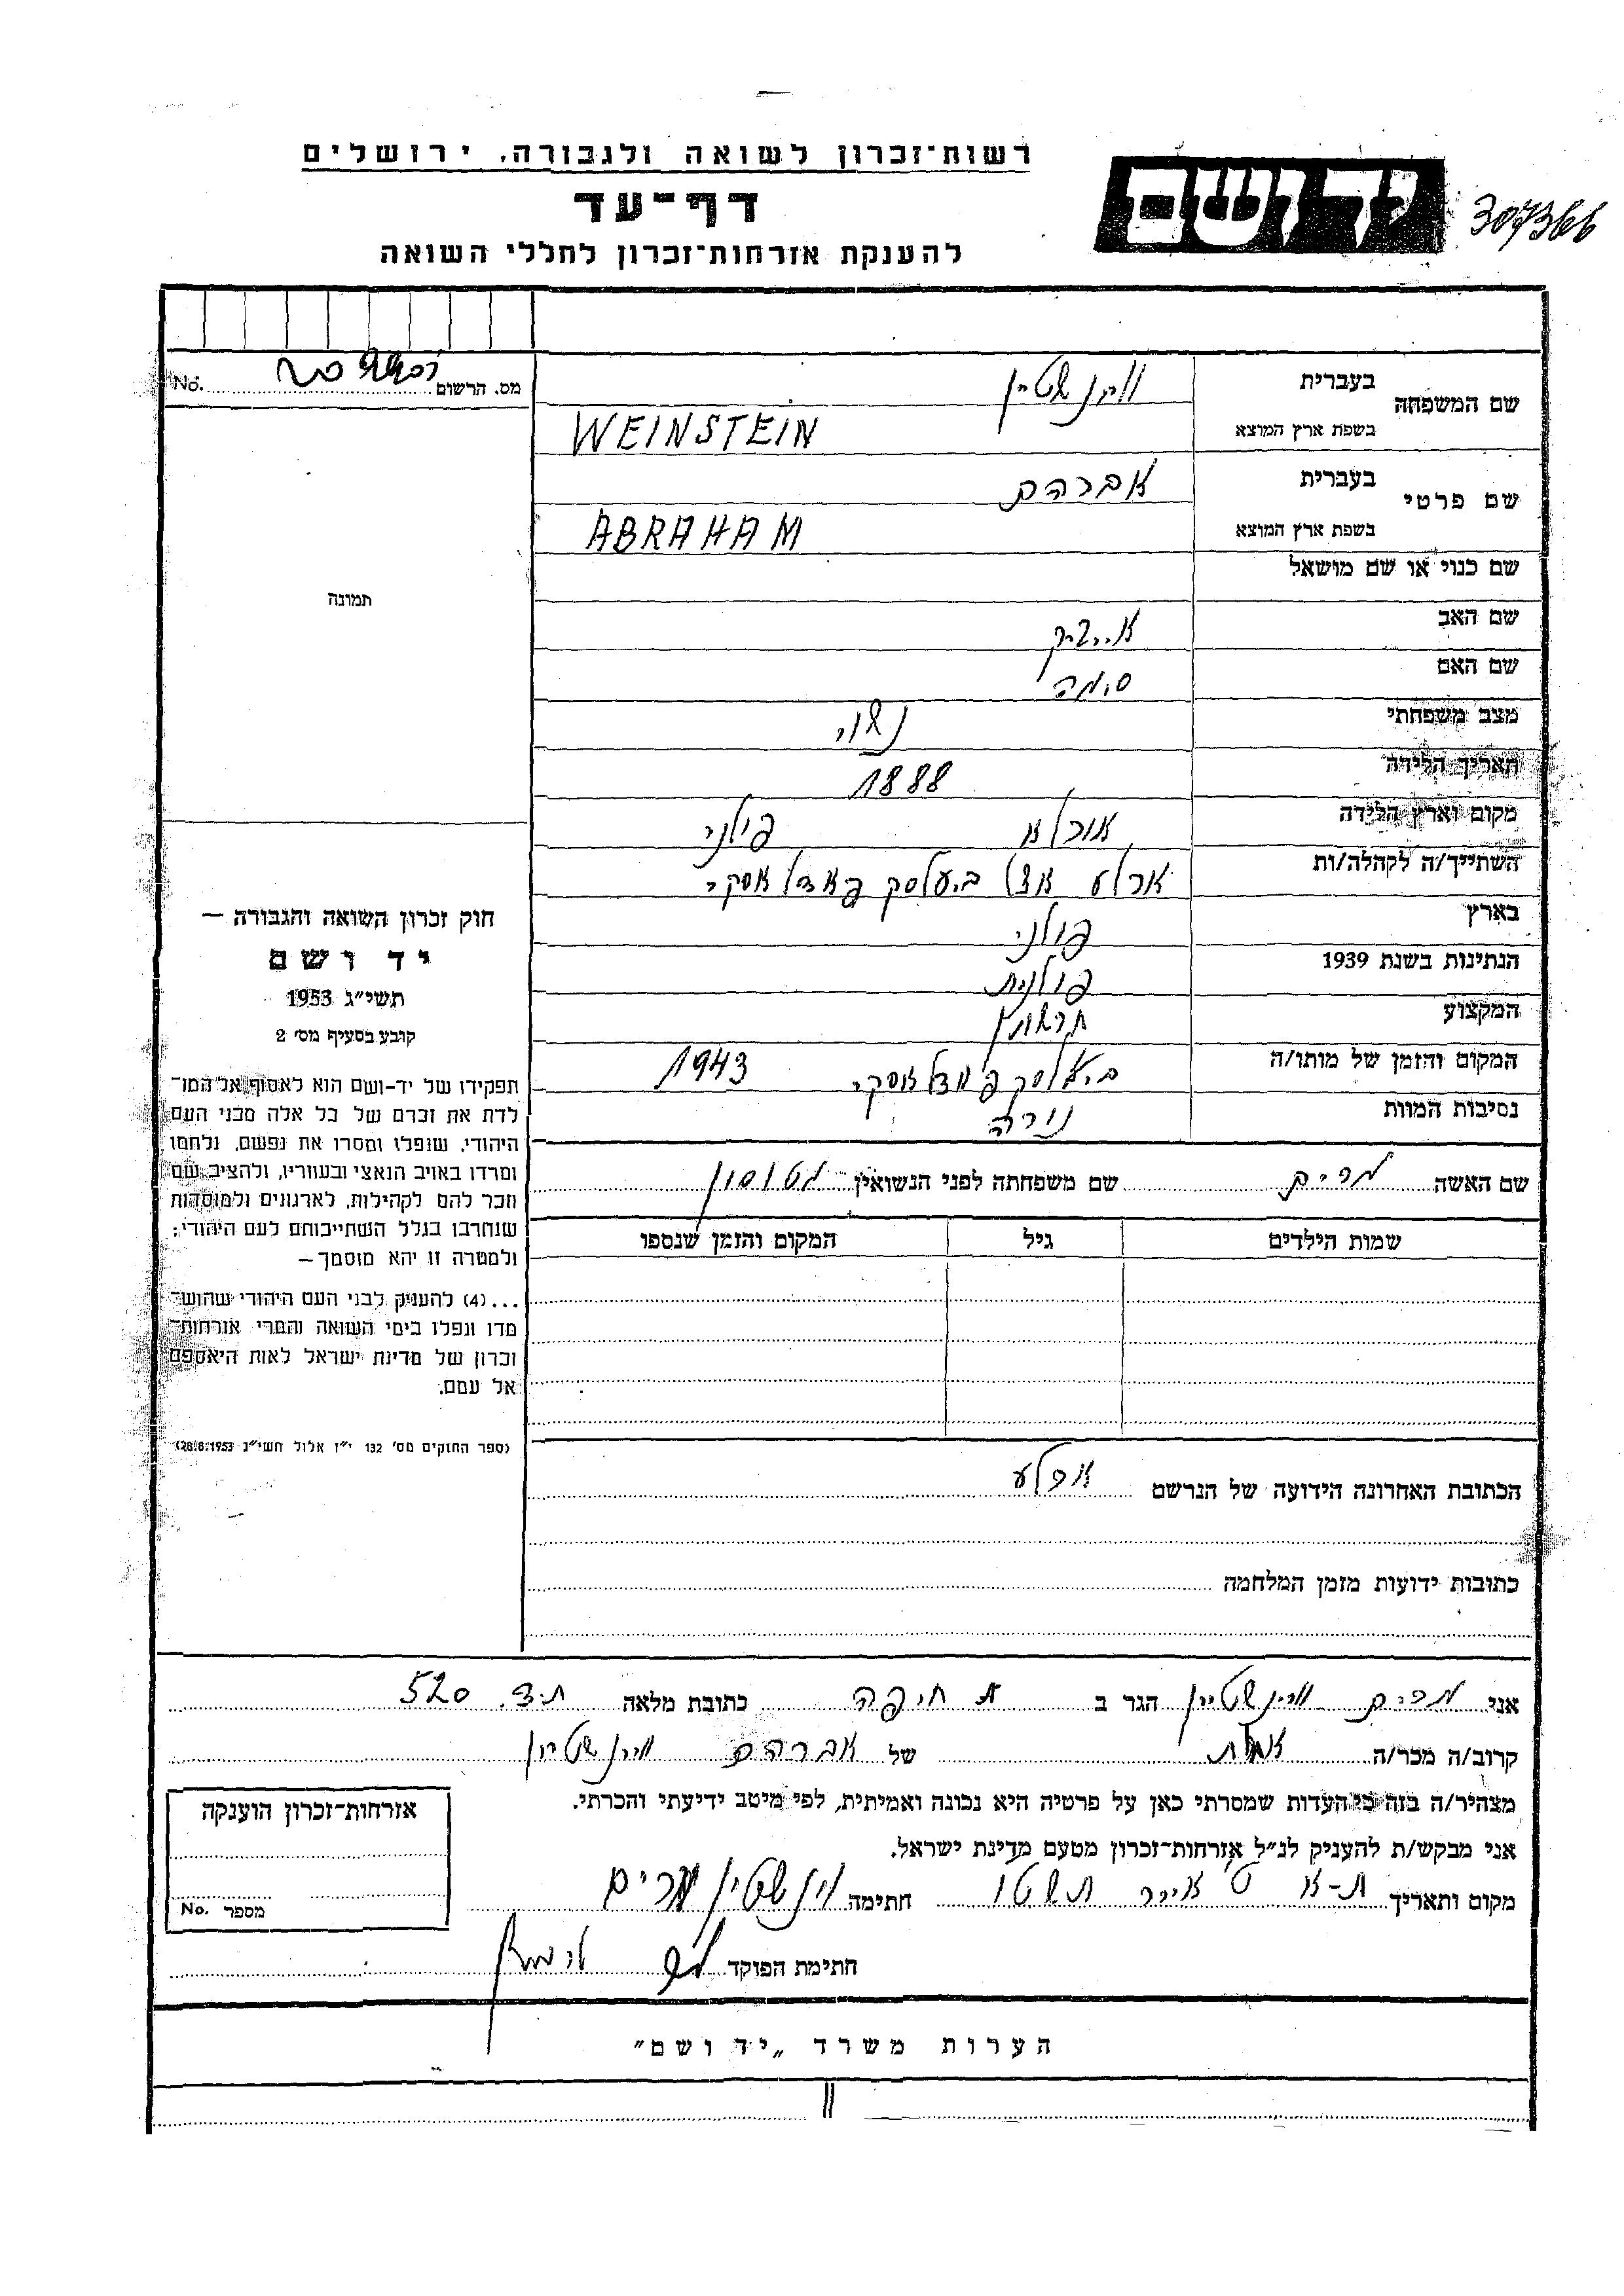 רשות־זכרון לשואה ולגבורה, ירושלים
דף־עד
להענקת אזרחות־זכרון לחללי השואה
יד ושם
307366
מס. הרשום No.
שם המשפחה
בעברית
ווינשטיין
בשפת ארץ המוצא
WEINSTEIN
שם פרטי
בעברית
אברהם
בשפת ארץ המוצא
ABRAHAM
שם כנוי או שם מושאל
שם האב אייזיק
שם האם סימה
מצב משפחתי נשוי
תאריך הלידה 1888
מקום וארץ הלידה אורלא פולני
השתייך/ה לקהלה/ות ארלע אצל ביעלסק פאדלאסקי
בארץ פולני
הנתינות בשנת 1939 פולנית
המקצוע
המקום והזמן של מותו/ה ביעלסק פאדלאסקי 1943
נסיבות המוות נורה
שם האשה מרים שם משפחתה לפני הנשואין
שמות הילדים גיל המקום והזמן שנספו
תמונה
חוק זכרון השואה והגבורה —
יד ושם
תשי״ג 1953
קובע בסעיף מס׳ 2
תפקידו של יד-ושם הוא לאסוף אל המו־
לדת את זכרם של כל אלה מבני העם
היהודי, שנפלו ומסרו את נפשם, נלחמו
ומרדו באויב הנאצי ובעוזריו, ולהציב שם
וזכר להם לקהילות, לארגונים ולמוסדות
שנחרבו בגלל השתייכותם לעם היהודי;
ולמטרה זו יהא מוסמך—
...(4) להעניק לבני העם היהודי שהוש־
מדו ונפלו בימי השואה והמרי אזרחות־
זכרון של מדינת ישראל לאות היאספם
אל עמם.
(ספר החוקים מס׳ 132 י״ז אלול תשי״ג 28.8.1953)
הכתובת האחרונה הידועה של הנרשם ארלע
כתובות ידועות מזמן המלחמה
אני מרים ווינשטיין הגר ב חיפה כתובת מלאה ת.ד. 520
קרוב/ה מכר/ה של אברהם ווינשטיין
מצהיר/ה בזה כי העדות שמסרתי כאן על פרטיה היא נכונה ואמיתית, לפי מיטב ידיעתי והכרתי.
אני מבקש/ת להעניק לנ״ל אזרחות־זכרון מטעם מדינת ישראל.
מקום ותאריך ת-א ט׳ אייר תשטו חתימה וינשטין מרים
חתימת הפוקד
אזרחות־זכרון הוענקה
מספר No.
הערות משרד „יד ושם״